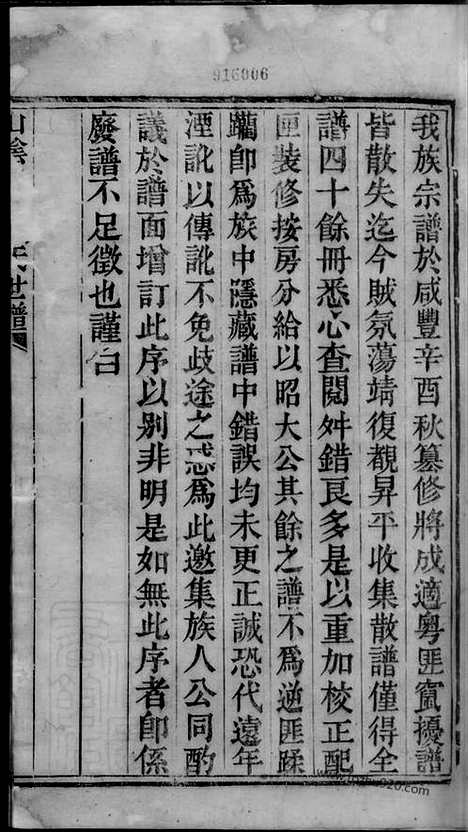 916006
我族宗譜於咸豐辛酉秋纂修將成適粵匪竄擾譜
皆散失迄今賊氛蕩靖復覩昇平收集散譜僅得全
譜四十餘冊悉心查閱舛錯良多是以重加校正配
匣裝修按房分給以昭大公其餘之譜不爲逆匪蹂
躪卽爲族中隱藏譜中錯誤均未更正誠恐代遠年
湮訛以傳訛不免歧途之惑爲此邀集族人公同酌
議於譜面增訂此序以別非明是如無此序者卽係
廢譜不足徵也謹白
山陰 氏世譜